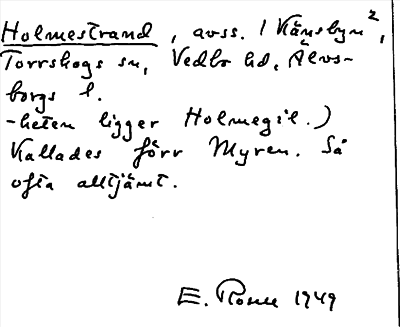 Holmestrand, avss. / Vänsbyn²,
Torrskogs sn, Vedbo hd, Älvs-
borgs l.
-heten ligger Holmegil.)
Kallades förr Myren. Så
ofta alltjämt.
E. Rosell 1949